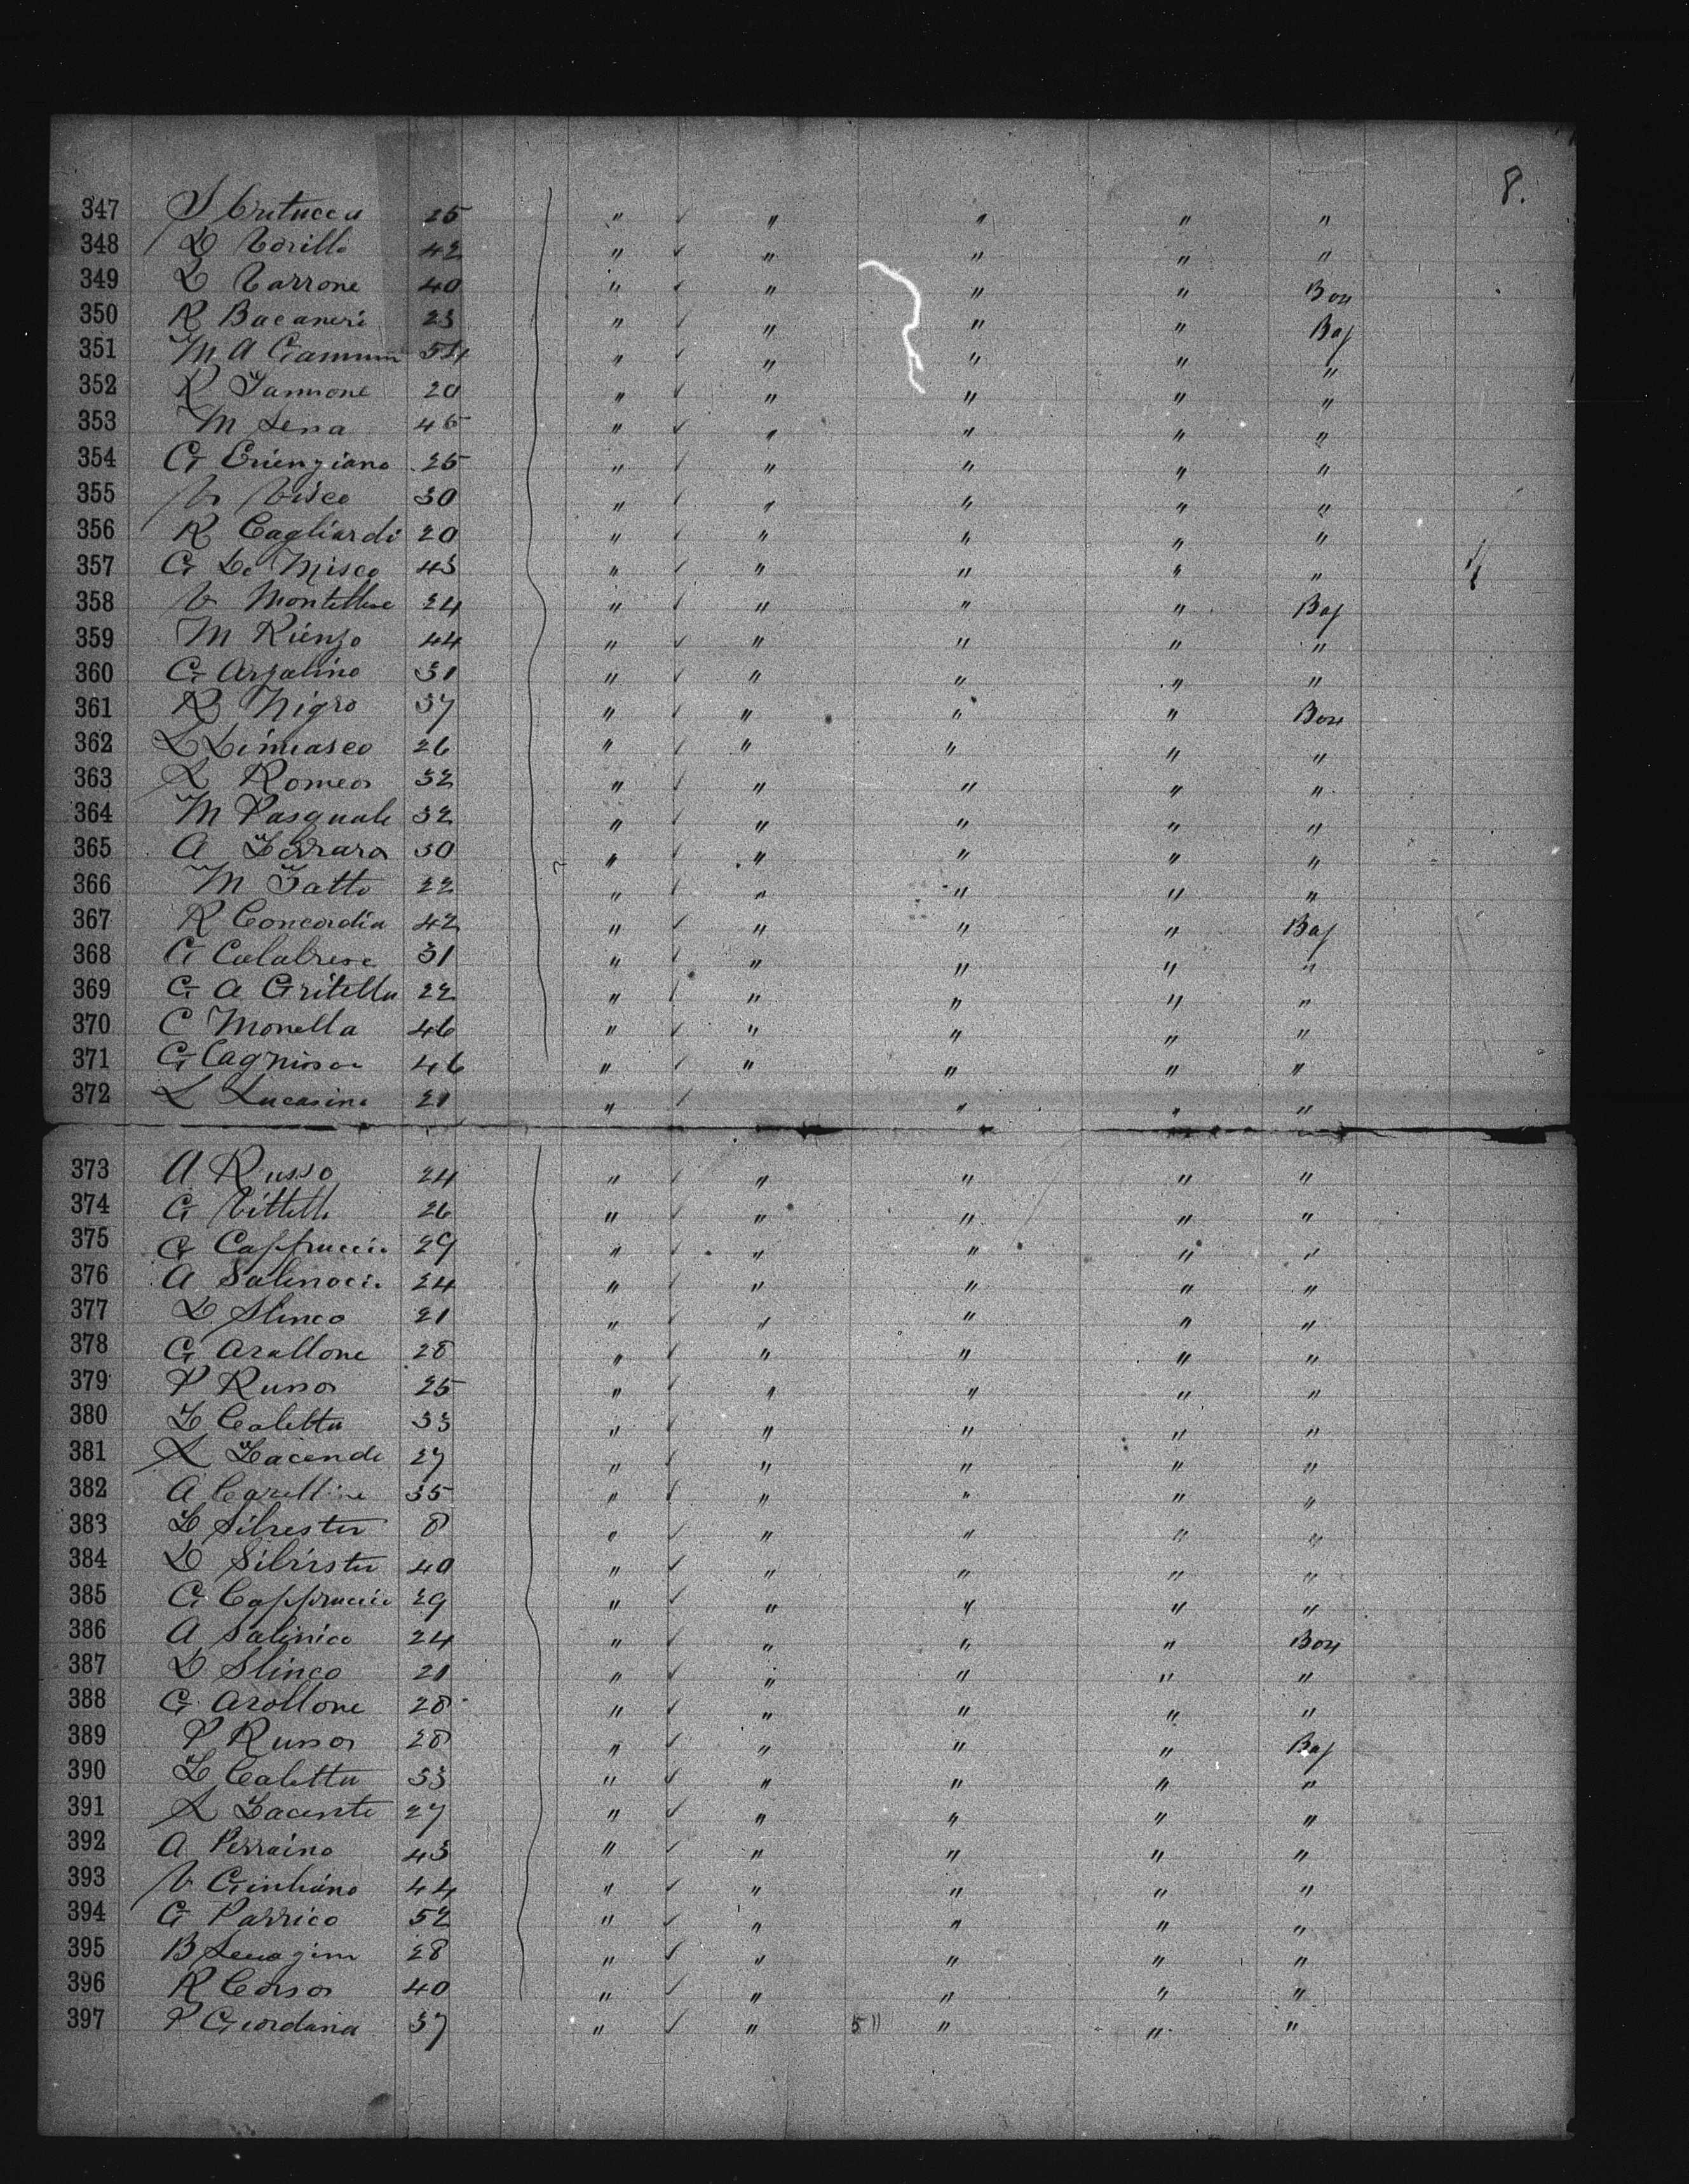 8.
347 S Critucca 25 " ✓ " " " "
348 D Torillo 42 " ✓ " " " "
349 D Varrone 40 " ✓ " " " Box
350 R Bacaneri 23 " ✓ " " " Bag
351 M A Giammm 54 " ✓ " " " "
352 R Iannone 20 " ✓ " " " "
353 M Lena 45 " ✓ " " " "
354 G Crienziano 25 " ✓ " " " "
355 V Visco 30 " ✓ " " " "
356 R Cagliardi 20 " ✓ " " " "
357 G De Misco 43 " ✓ " " " "
358 V Montellese 24 " ✓ " " " Bag
359 M Rienzo 44 " ✓ " " " "
360 G Arzalino 31 " ✓ " " " "
361 R Nigro 37 " ✓ " " " Box
362 L Limiasco 26 " ✓ " " " "
363 L Romeo 32 " ✓ " " " "
364 M Pasquale 32 " ✓ " " " "
365 A Ferrara 30 " ✓ " " " "
366 M Fatto 22 " ✓ " " " "
367 R Concordia 42 " ✓ " " " Bag
368 G Calabrese 31 " ✓ " " " "
369 G A Gritella 22 " ✓ " " " "
370 C Monella 46 " ✓ " " " "
371 G Cagnisoe 46 " ✓ " " " "
372 L Lucasino 21 " ✓ " " "
373 A Russo 24 " ✓ " " " "
374 G Vittelli 26 " ✓ " " " "
375 G Cappruccio 29 " ✓ " " " "
376 A Salinocio 24 " ✓ " " " "
377 D Slinco 21 " ✓ " " " "
378 G Arallone 28 " ✓ " " " "
379 P Russo 25 " ✓ " " " "
380 F Caletta 33 " ✓ " " " "
381 L Facende 27 " ✓ " " " "
382 A Carelline 35 " ✓ " " " "
383 F Silvester 8 " ✓ " " " "
384 D Silvester 40 " ✓ " " " "
385 G Cappruccio 29 " ✓ " " " "
386 A Salinico 24 " ✓ " " " Box
387 D Slinco 21 " ✓ " " " "
388 G Arollone 28 " ✓ " " " "
389 P Russo 28 " ✓ " " " Bag
390 F Caletta 33 " ✓ " " " "
391 L Facente 27 " ✓ " " " "
392 A Perraino 43 " ✓ " " " "
393 V Giuliano 44 " ✓ " " " "
394 G Parrico 52 " ✓ " " " "
395 B 28 " ✓ " " " "
396 R Corso 40 " ✓ " " " "
397 P Giordana 37 " ✓ " " " "